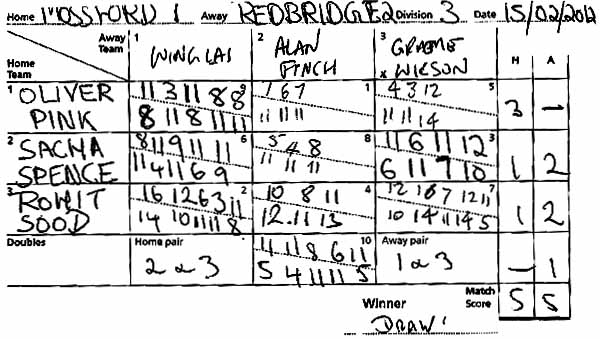 Home MOSSFORD 1 Away REDBRIDGE 2 Division 3 Date 15/02/2012
Away Team
Home Team
1 WING LAI
2 ALAN FINCH
3 GRAEME x WILSON
H A
1 OLIVER PINK
11 3 11 8 8 9
8 11 8 11 11
7 6 7 1
11 11 11
4 3 12 5
11 11 14
3 —
2 SACHA SPENCE
8 11 9 11 11 6
11 4 11 6 9
5 4 8 8
11 11 11
11 6 11 12 3
6 11 7 10
1 2
3 ROHIT SOOD
16 12 6 3 11 2
14 10 11 11 8
10 8 11 4
12 11 13
12 16 7 12 11 7
10 14 11 14 5
1 2
Doubles
Home pair
2 a 3
11 11 8 6 11 10
5 4 11 11 5
Away pair
1 a 3
— 1
Winner Match Score 5 5
DRAW